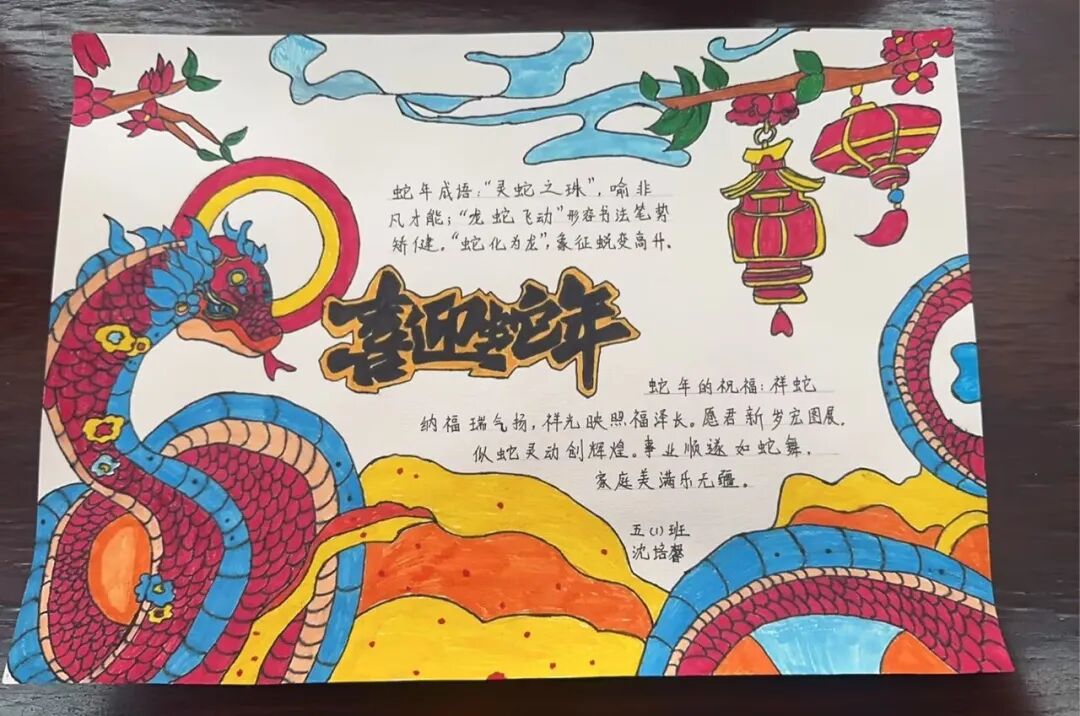 蛇年成语:“灵蛇之珠”,喻非
凡才能;“龙蛇飞动”形容书法笔势
矫健。“蛇化为龙”,象征蜕变高升.
喜迎蛇年
蛇年的祝福:祥蛇
纳福瑞气扬,祥光映照福泽长。愿君新岁宏图展,
似蛇灵动创辉煌。事业顺遂如蛇舞,
家庭美满乐无疆。
五(1)班
沈培馨